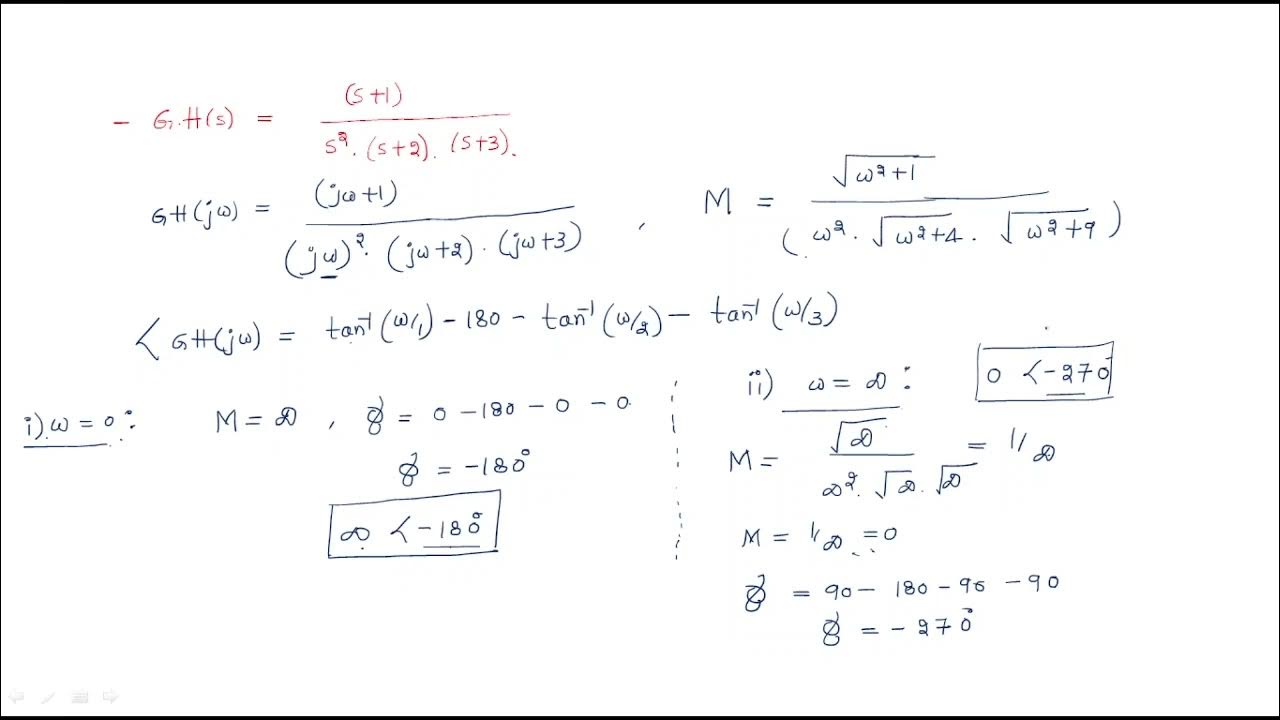 - G.H(s) = (s+1) / s². (s+2). (s+3).
GH(jω) = (jω+1) / (jω)². (jω+2). (jω+3) , M = √ω²+1 / (ω². √ω²+4. √ω²+9)
∠GH(jω) = tan⁻¹(ω/1) - 180 - tan⁻¹(ω/2) - tan⁻¹(ω/3)
i) ω = 0: M = ∞ , ϕ = 0 - 180 - 0 - 0
ϕ = -180°
∞ ∠-180°
ii) ω = ∞: 0 ∠-270°
M = √∞ / ∞². √∞. √∞ = 1/∞
M = 1/∞ = 0
ϕ = 90 - 180 - 90 - 90
ϕ = -270°